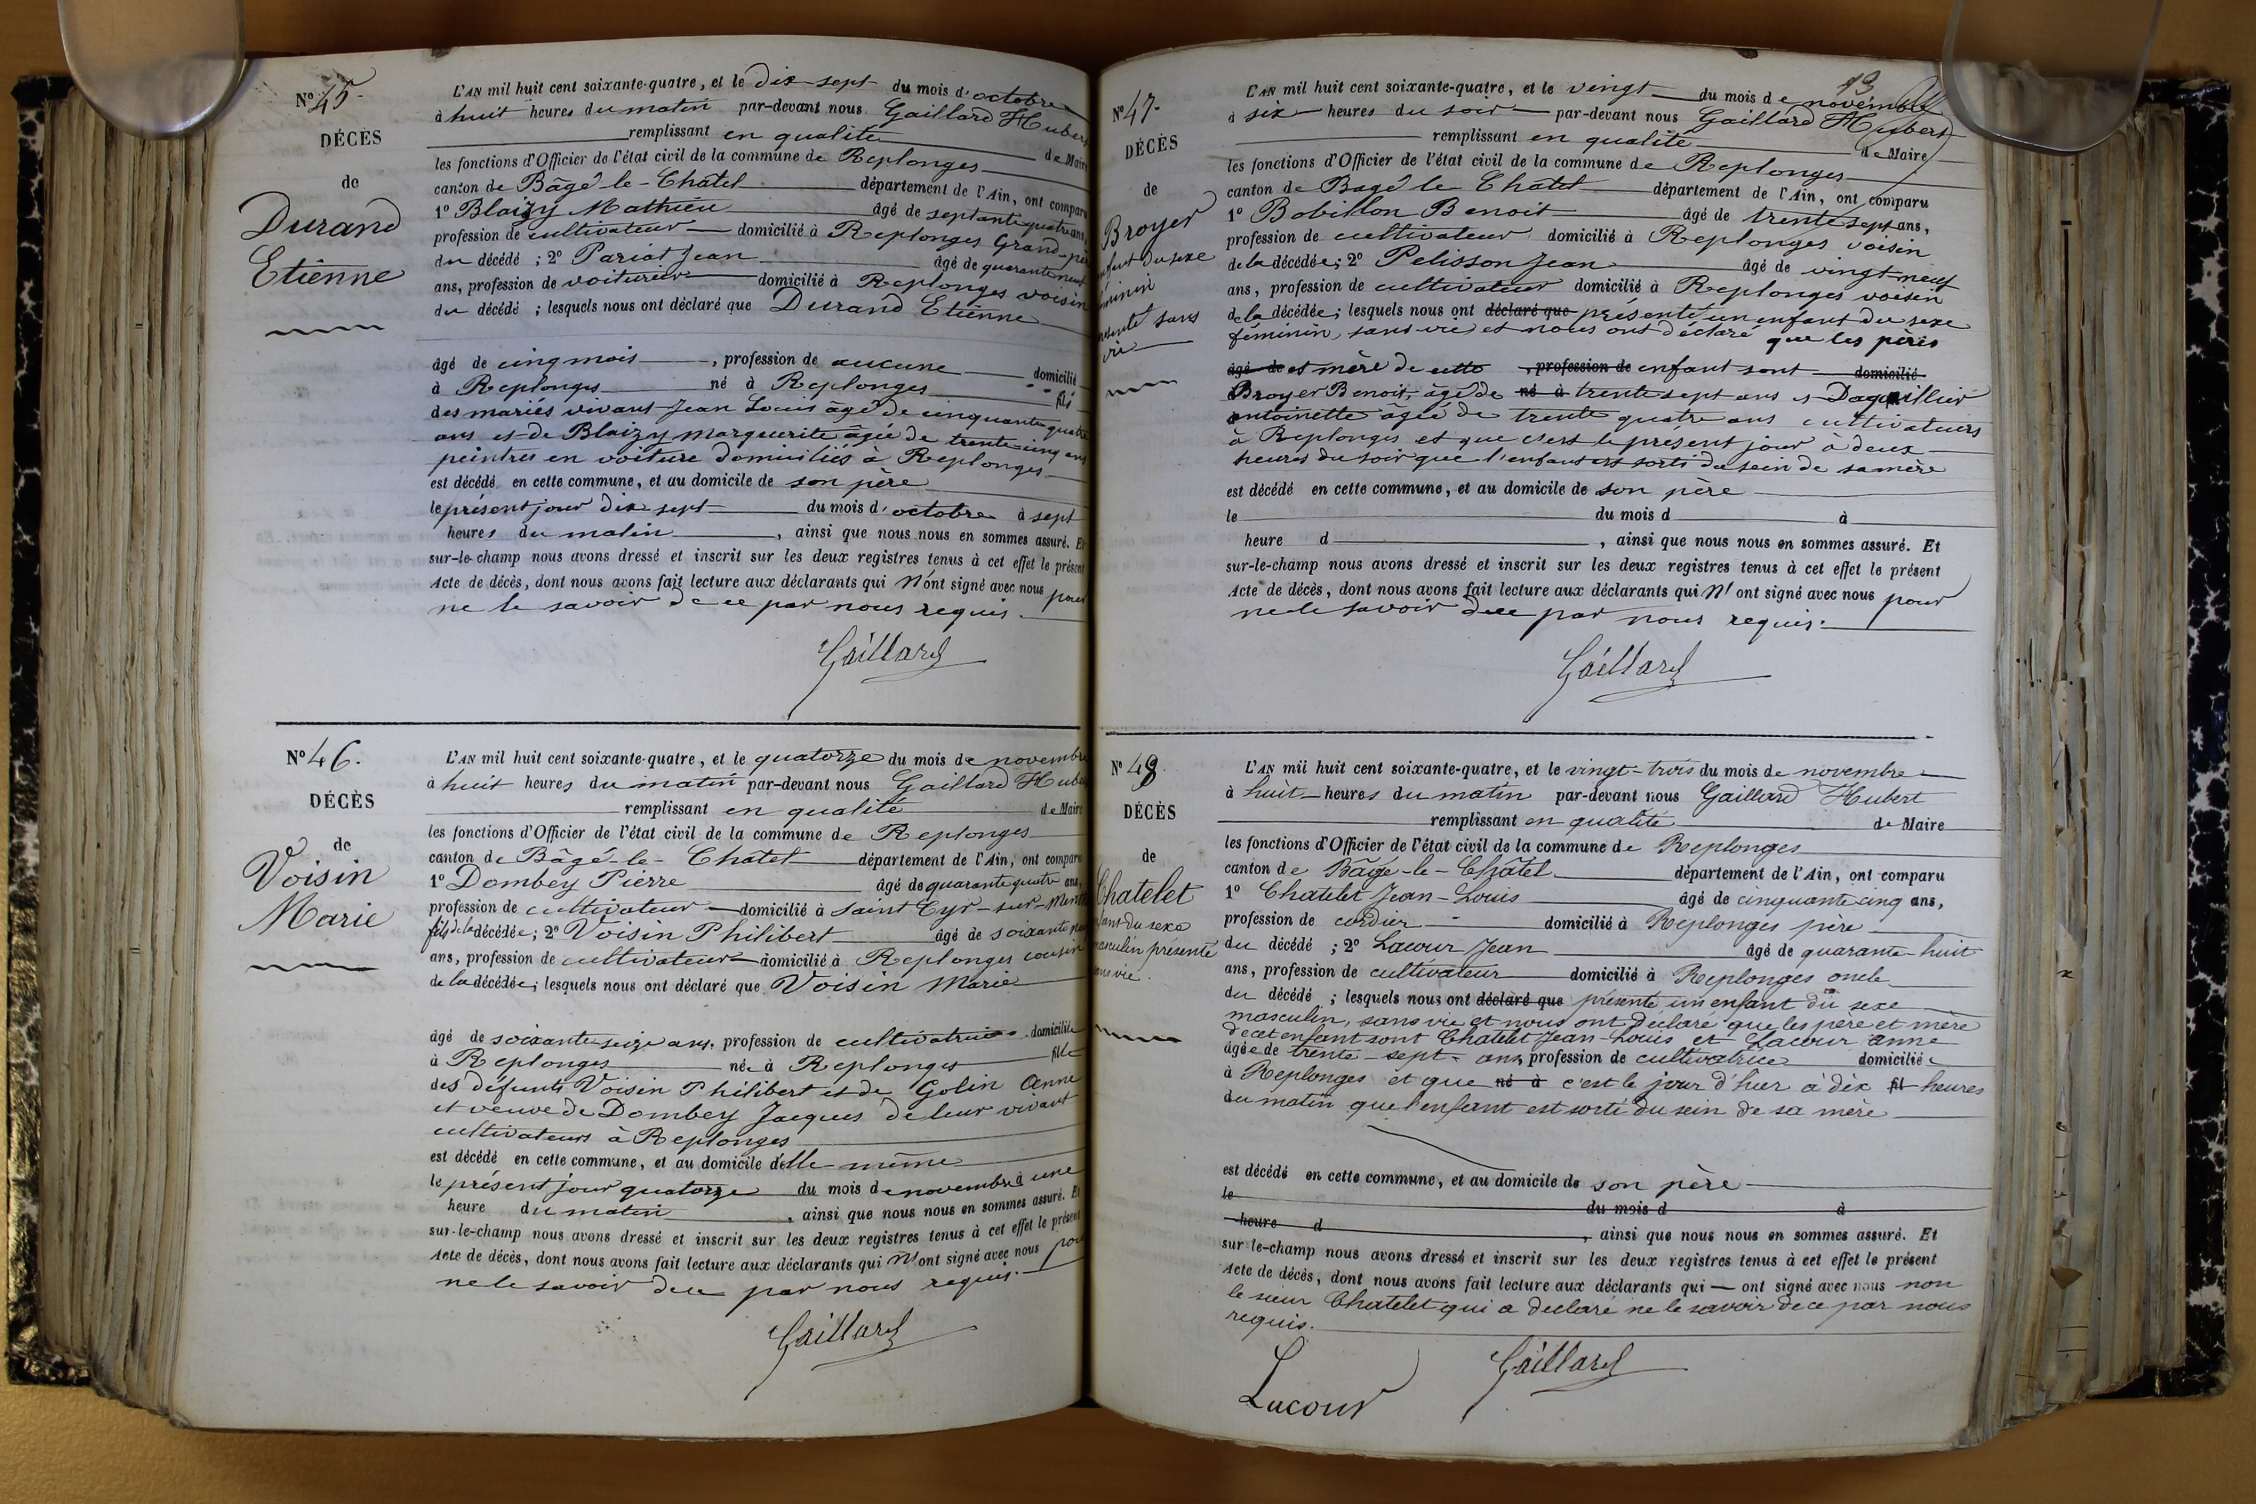 N° 45.
DÉCÈS
de
Durand
Etienne
L'AN mil huit cent soixante-quatre, et le dix-sept du mois d'octobre
à huit heures du matin par-devant nous Gaillard Hubert
remplissant en qualité de Maire
les fonctions d'Officier de l'état civil de la commune de Replonges
canton de Bâgé-le-Châtel département de l'Ain, ont comparu
1° Blaizy Mathieu âgé de septante quatre ans,
profession de cultivateur domicilié à Replonges Grand-père
du décédé ; 2° Pariat Jean âgé de quarante neuf
ans, profession de voitureur domicilié à Replonges voisin
du décédé ; lesquels nous ont déclaré que Durand Etienne
âgé de cinq mois , profession de aucune domicilié
à Replonges né à Replonges fils
des mariés vivans Jean Louis âgé de cinquante quatre
ans et de Blaizy Marguerite âgée de trente cinq ans
peintres en voiture domiciliés à Replonges
est décédé en cette commune, et au domicile de son père
le présent jour dix sept du mois d'octobre à sept
heures du matin , ainsi que nous nous en sommes assuré. Et
sur-le-champ nous avons dressé et inscrit sur les deux registres tenus à cet effet le présent
Acte de décès, dont nous avons fait lecture aux déclarants qui n'ont signé avec nous pour
ne le savoir de ce par nous requis.
Gaillard
N° 46.
DÉCÈS
de
Voisin
Marie
L'AN mil huit cent soixante-quatre, et le quatorze du mois de novembre
à huit heures du matin par-devant nous Gaillard Hubert
remplissant en qualité de Maire
les fonctions d'Officier de l'état civil de la commune de Replonges
canton de Bâgé-le-Châtel département de l'Ain, ont comparu
1° Dombey Pierre âgé de quarante quatre ans,
profession de cultivateur domicilié à Saint Cyr-sur-Menthon
fils de la décédée ; 2° Voisin Philibert âgé de soixante
ans, profession de cultivateur domicilié à Replonges cousin
de la décédée ; lesquels nous ont déclaré que Voisin Marie
âgé de soixante seize ans, profession de cultivatrice domiciliée
à Replonges née à Replonges fille
des défunts Voisin Philibert et de Golin Anne
et veuve de Dombey Jacques de leur vivant
cultivateurs à Replonges
est décédé en cette commune, et au domicile d'elle même
le présent jour quatorze du mois de novembre à une
heure du matin , ainsi que nous nous en sommes assuré. Et
sur-le-champ nous avons dressé et inscrit sur les deux registres tenus à cet effet le présent
Acte de décès, dont nous avons fait lecture aux déclarants qui n'ont signé avec nous pour
ne le savoir de ce par nous requis.
Gaillard
13
N° 47.
DÉCÈS
de
Broyer
enfant du sexe
féminin
présenté sans
vie
L'AN mil huit cent soixante-quatre, et le vingt du mois de novembre
à six heures du soir par-devant nous Gaillard Hubert
remplissant en qualité de Maire
les fonctions d'Officier de l'état civil de la commune de Replonges
canton de Bagé le Châtel département de l'Ain, ont comparu
1° Bobillon Benoit âgé de trente sept ans,
profession de cultivateur domicilié à Replonges voisin
de la décédée ; 2° Pelisson Jean âgé de vingt neuf
ans, profession de cultivateur domicilié à Replonges voisin
de la décédée ; lesquels nous ont déclaré que présenté un enfant du sexe
féminin, sans vie et nous ont déclaré que les pères
âgé de et mère de cette , profession de enfant sont domicilié
Broyer Benoit, âgé de né à trente sept ans et Daguillier
antoinette âgée de trente quatre ans cultivateurs
à Replonges et que c'est le présent jour à deux
heures du soir que l'enfant est sorti du sein de sa mère
est décédé en cette commune, et au domicile de son père
le du mois d à
heure d , ainsi que nous nous en sommes assuré. Et
sur-le-champ nous avons dressé et inscrit sur les deux registres tenus à cet effet le présent
Acte de décès, dont nous avons fait lecture aux déclarants qui n'ont signé avec nous pour
ne le savoir de ce par nous requis.
Gaillard
N° 48.
DÉCÈS
de
Chatelet
enfant du sexe
masculin présenté
sans vie.
L'AN mil huit cent soixante-quatre, et le vingt-trois du mois de novembre
à huit heures du matin par-devant nous Gaillard Hubert
remplissant en qualité de Maire
les fonctions d'Officier de l'état civil de la commune de Replonges
canton de Bâgé-le-Châtel département de l'Ain, ont comparu
1° Chatelet Jean-Louis âgé de cinquante cinq ans,
profession de cordier domicilié à Replonges père
du décédé ; 2° Lacour Jean âgé de quarante-huit
ans, profession de cultivateur domicilié à Replonges oncle
du décédé ; lesquels nous ont déclaré que présenté un enfant du sexe
masculin, sans vie et nous ont déclaré que les père et mère
de cet enfant sont Chatelet Jean-Louis et Lacour anne
âgée de trente-sept ans, profession de cultivatrice domiciliée
à Replonges et que né à c'est le jour d'hier à dix fil heures
du matin que l'enfant est sorti du sein de sa mère
est décédé en cette commune, et au domicile de son père
le du mois d à
heure d , ainsi que nous nous en sommes assuré. Et
sur-le-champ nous avons dressé et inscrit sur les deux registres tenus à cet effet le présent
Acte de décès, dont nous avons fait lecture aux déclarants qui ont signé avec nous non
le sieur Chatelet qui a déclaré ne le savoir de ce par nous
requis.
Gaillard
Lacour